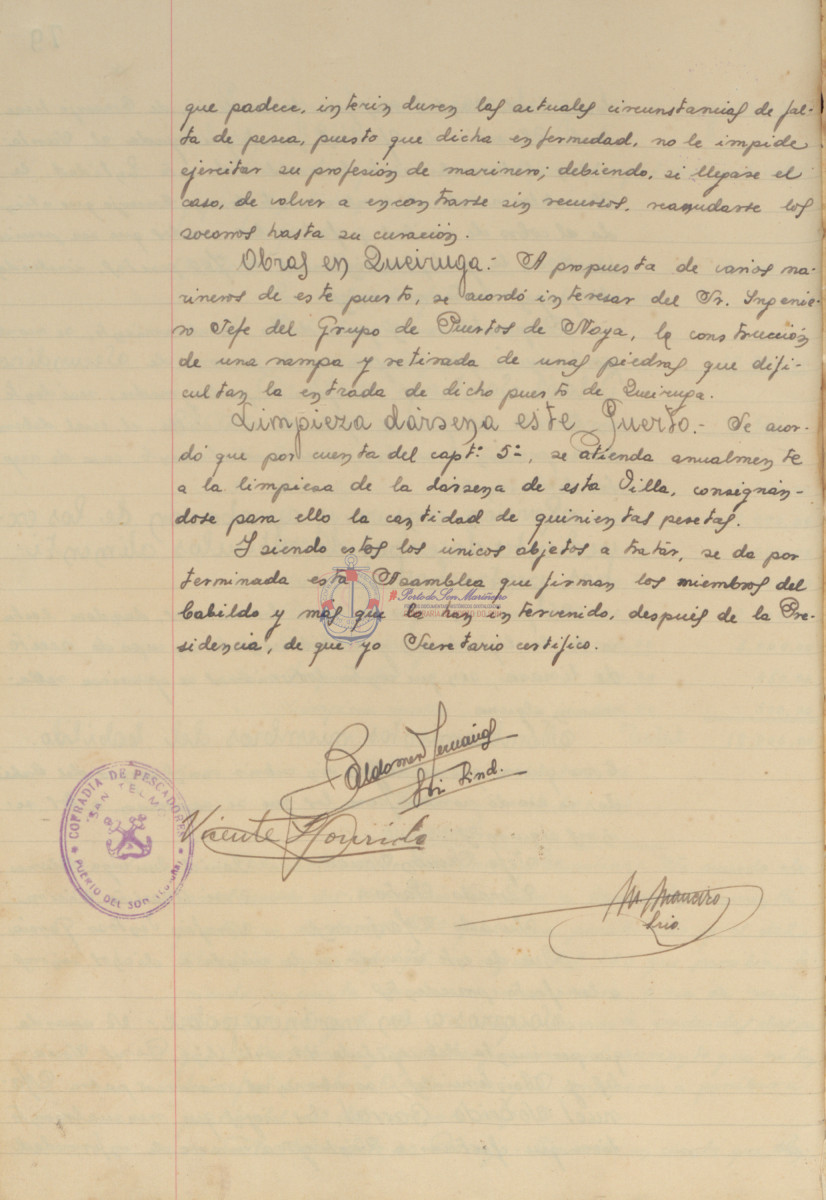 que padece, interin duren las actuales circunstancias de fal-
ta de pesca, puesto que dicha enfermedad, no le impide
ejercitar su profesión de marinero; debiendo, si llegase el
caso, de volver a encontrarse sin recursos, reanudarse los
socorros hasta su curación.
Obras en Queiruga.- A propuesta de varios ma-
rineros de este puerto, se acordó interesar del Sr. Ingenie-
ro Jefe del Grupo de Puertos de Noya, la construcción
de una rampa y retirada de unas piedras que difi-
cultan la entrada de dicho puerto de Queiruga.
Limpieza dársena este Puerto.- Se acor-
dó que por cuenta del capt.º 5º, se atienda anualmente
a la limpieza de la dársena de esta Villa, consignán-
dose para ello la cantidad de quinientas pesetas.
Y siendo estos los únicos objetos a tratar, se da por
terminada esta Asamblea que firman los miembros del
Cabildo y mas que la han intervenido, después de la Pre-
sidencia, de que yo Secretario certifico.
#Porto do Son Mariñeiro
COFRADIA DE PESCADORES
"SAN TELMO"
PUERTO DEL SON
Vicente
Srio.